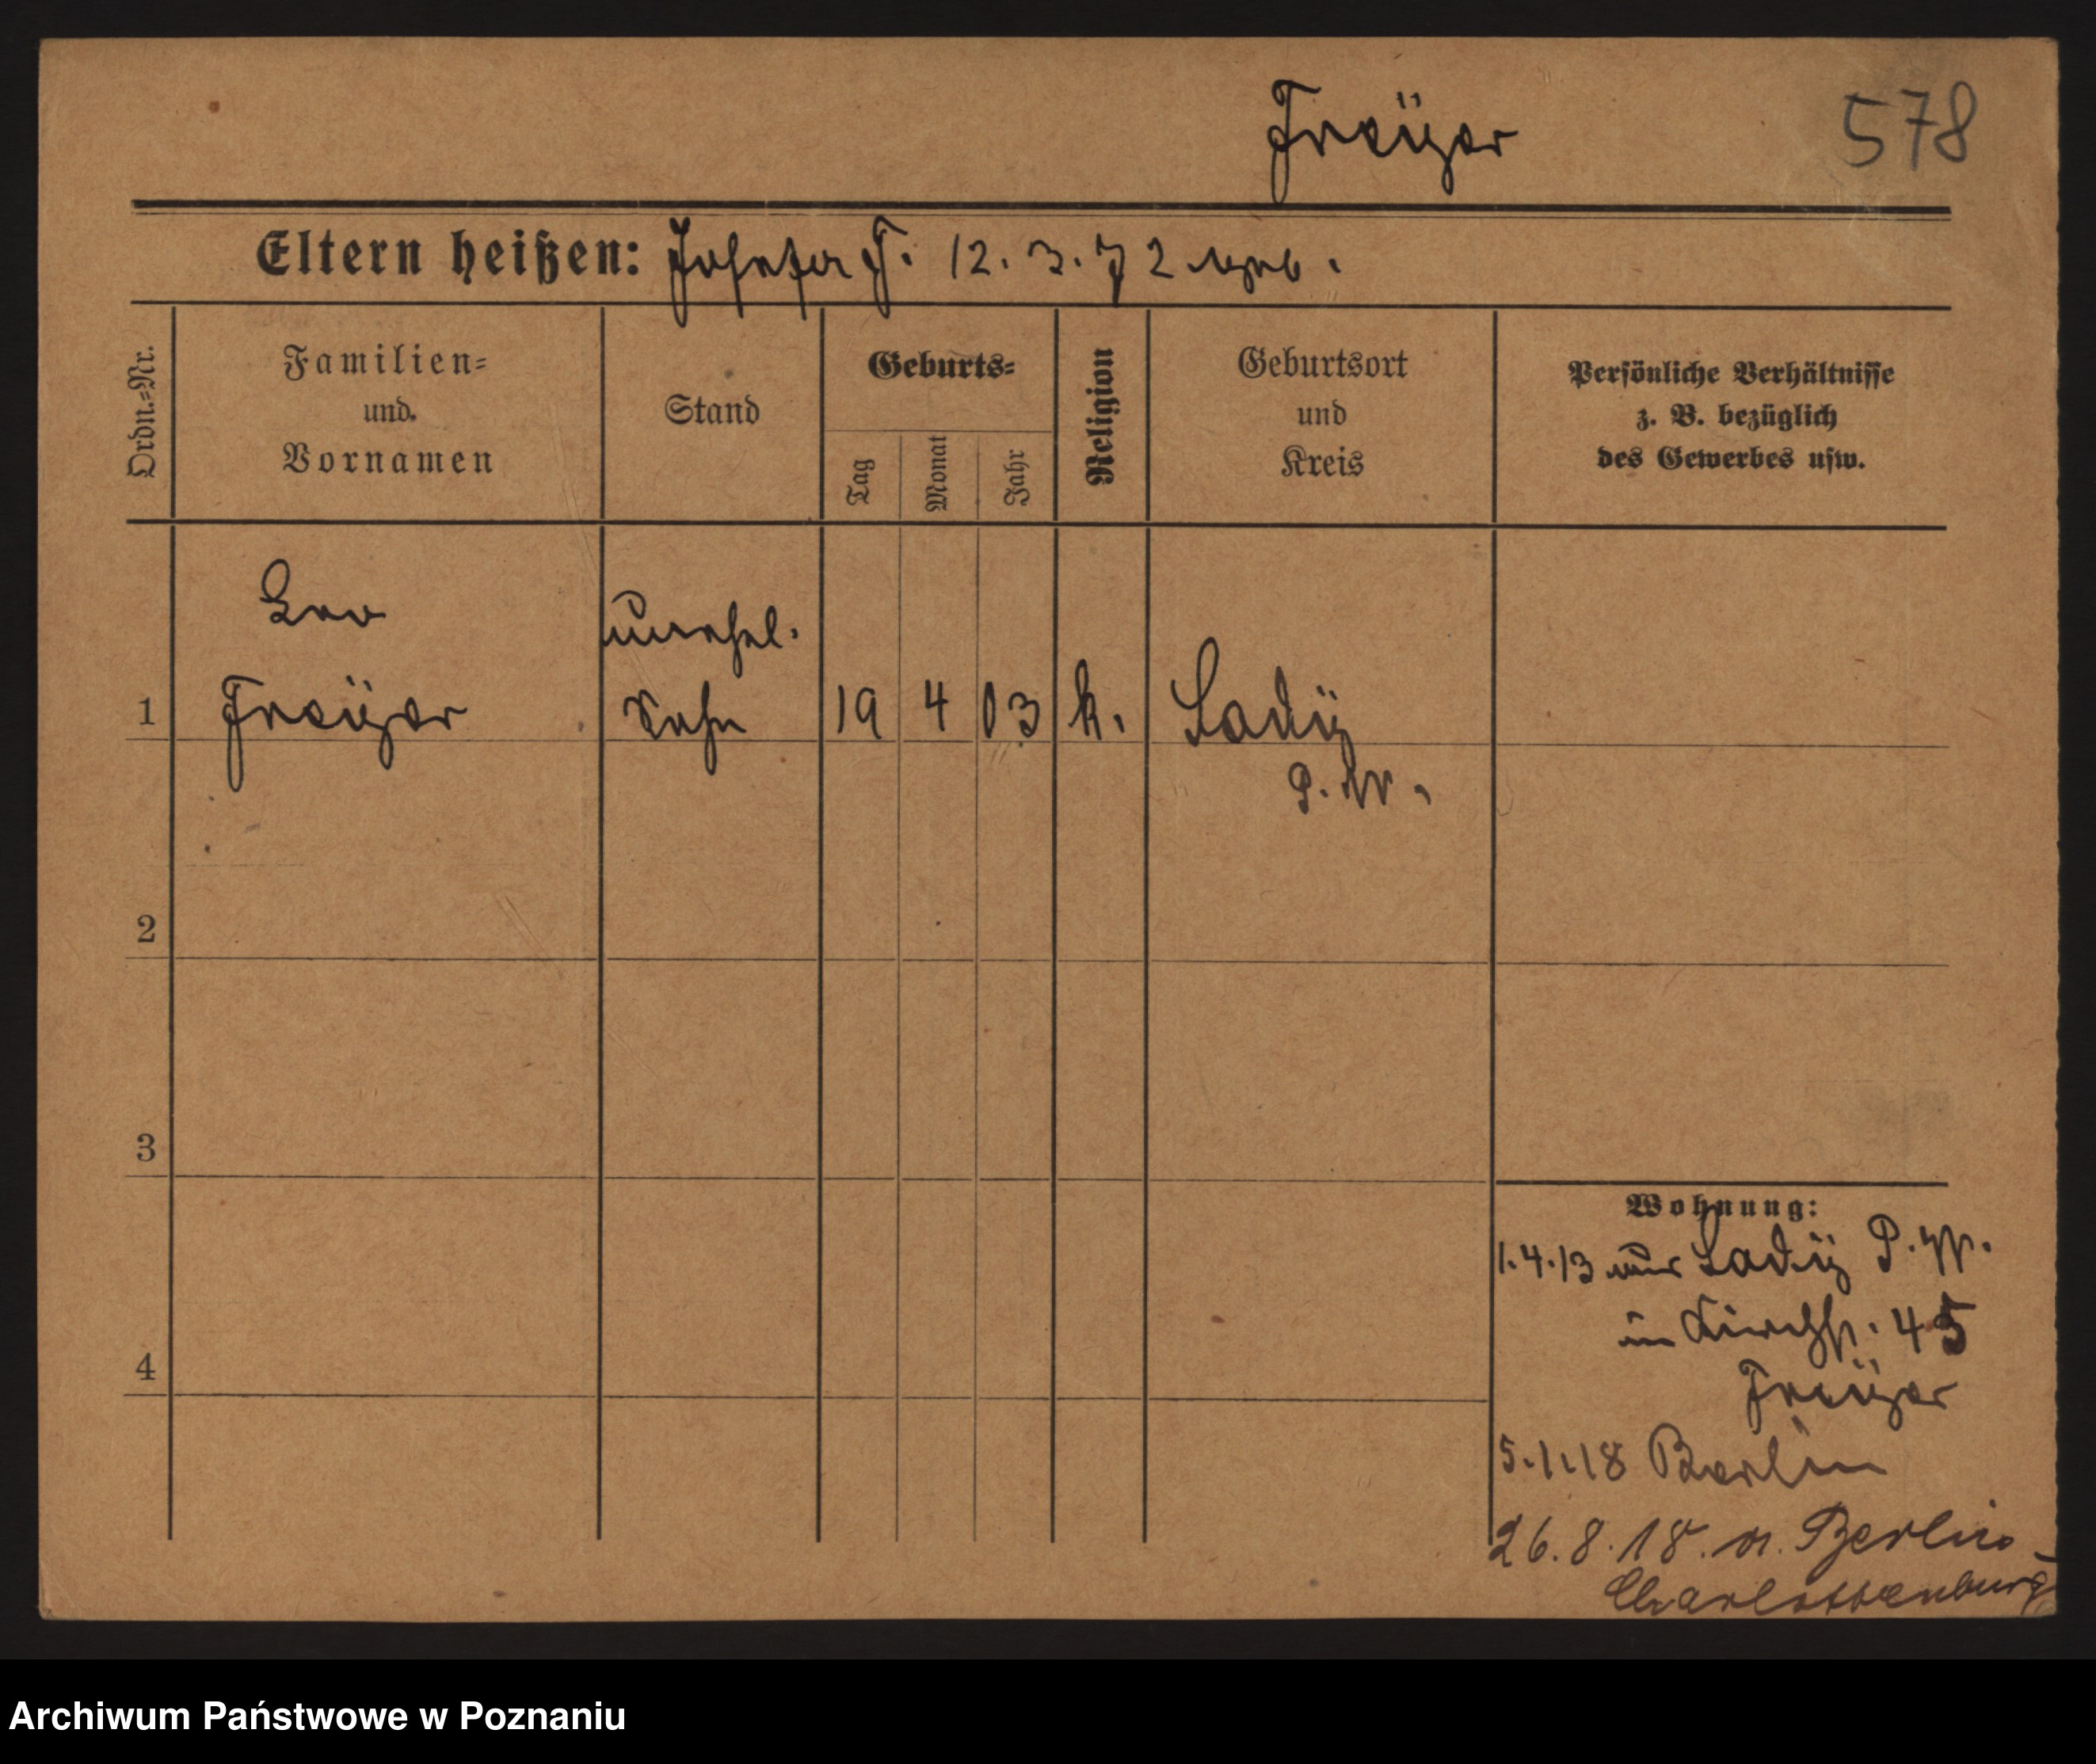 Freÿer 578
Eltern heißen: Josefa F. 12. 3. 72 geb.
Ordn.=Nr.
Familien=
und
Vornamen
Stand
Geburts=
Tag
Monat
Jahr
Religion
Geburtsort
und
Kreis
Persönliche Verhältnisse
z. B. bezüglich
des Gewerbes usw.
Leo
unehel.
1 Freÿer Sohn 19 4 03 k. Ladÿ
P. W.
2
3
4
Wohnung:
1.4.13 aus Ladÿ P. W.
in Kirchstr. 45
Freÿer
5.1.18 Berlin
26.8.18. n. Berlin-
Charlottenburg
Archiwum Państwowe w Poznaniu